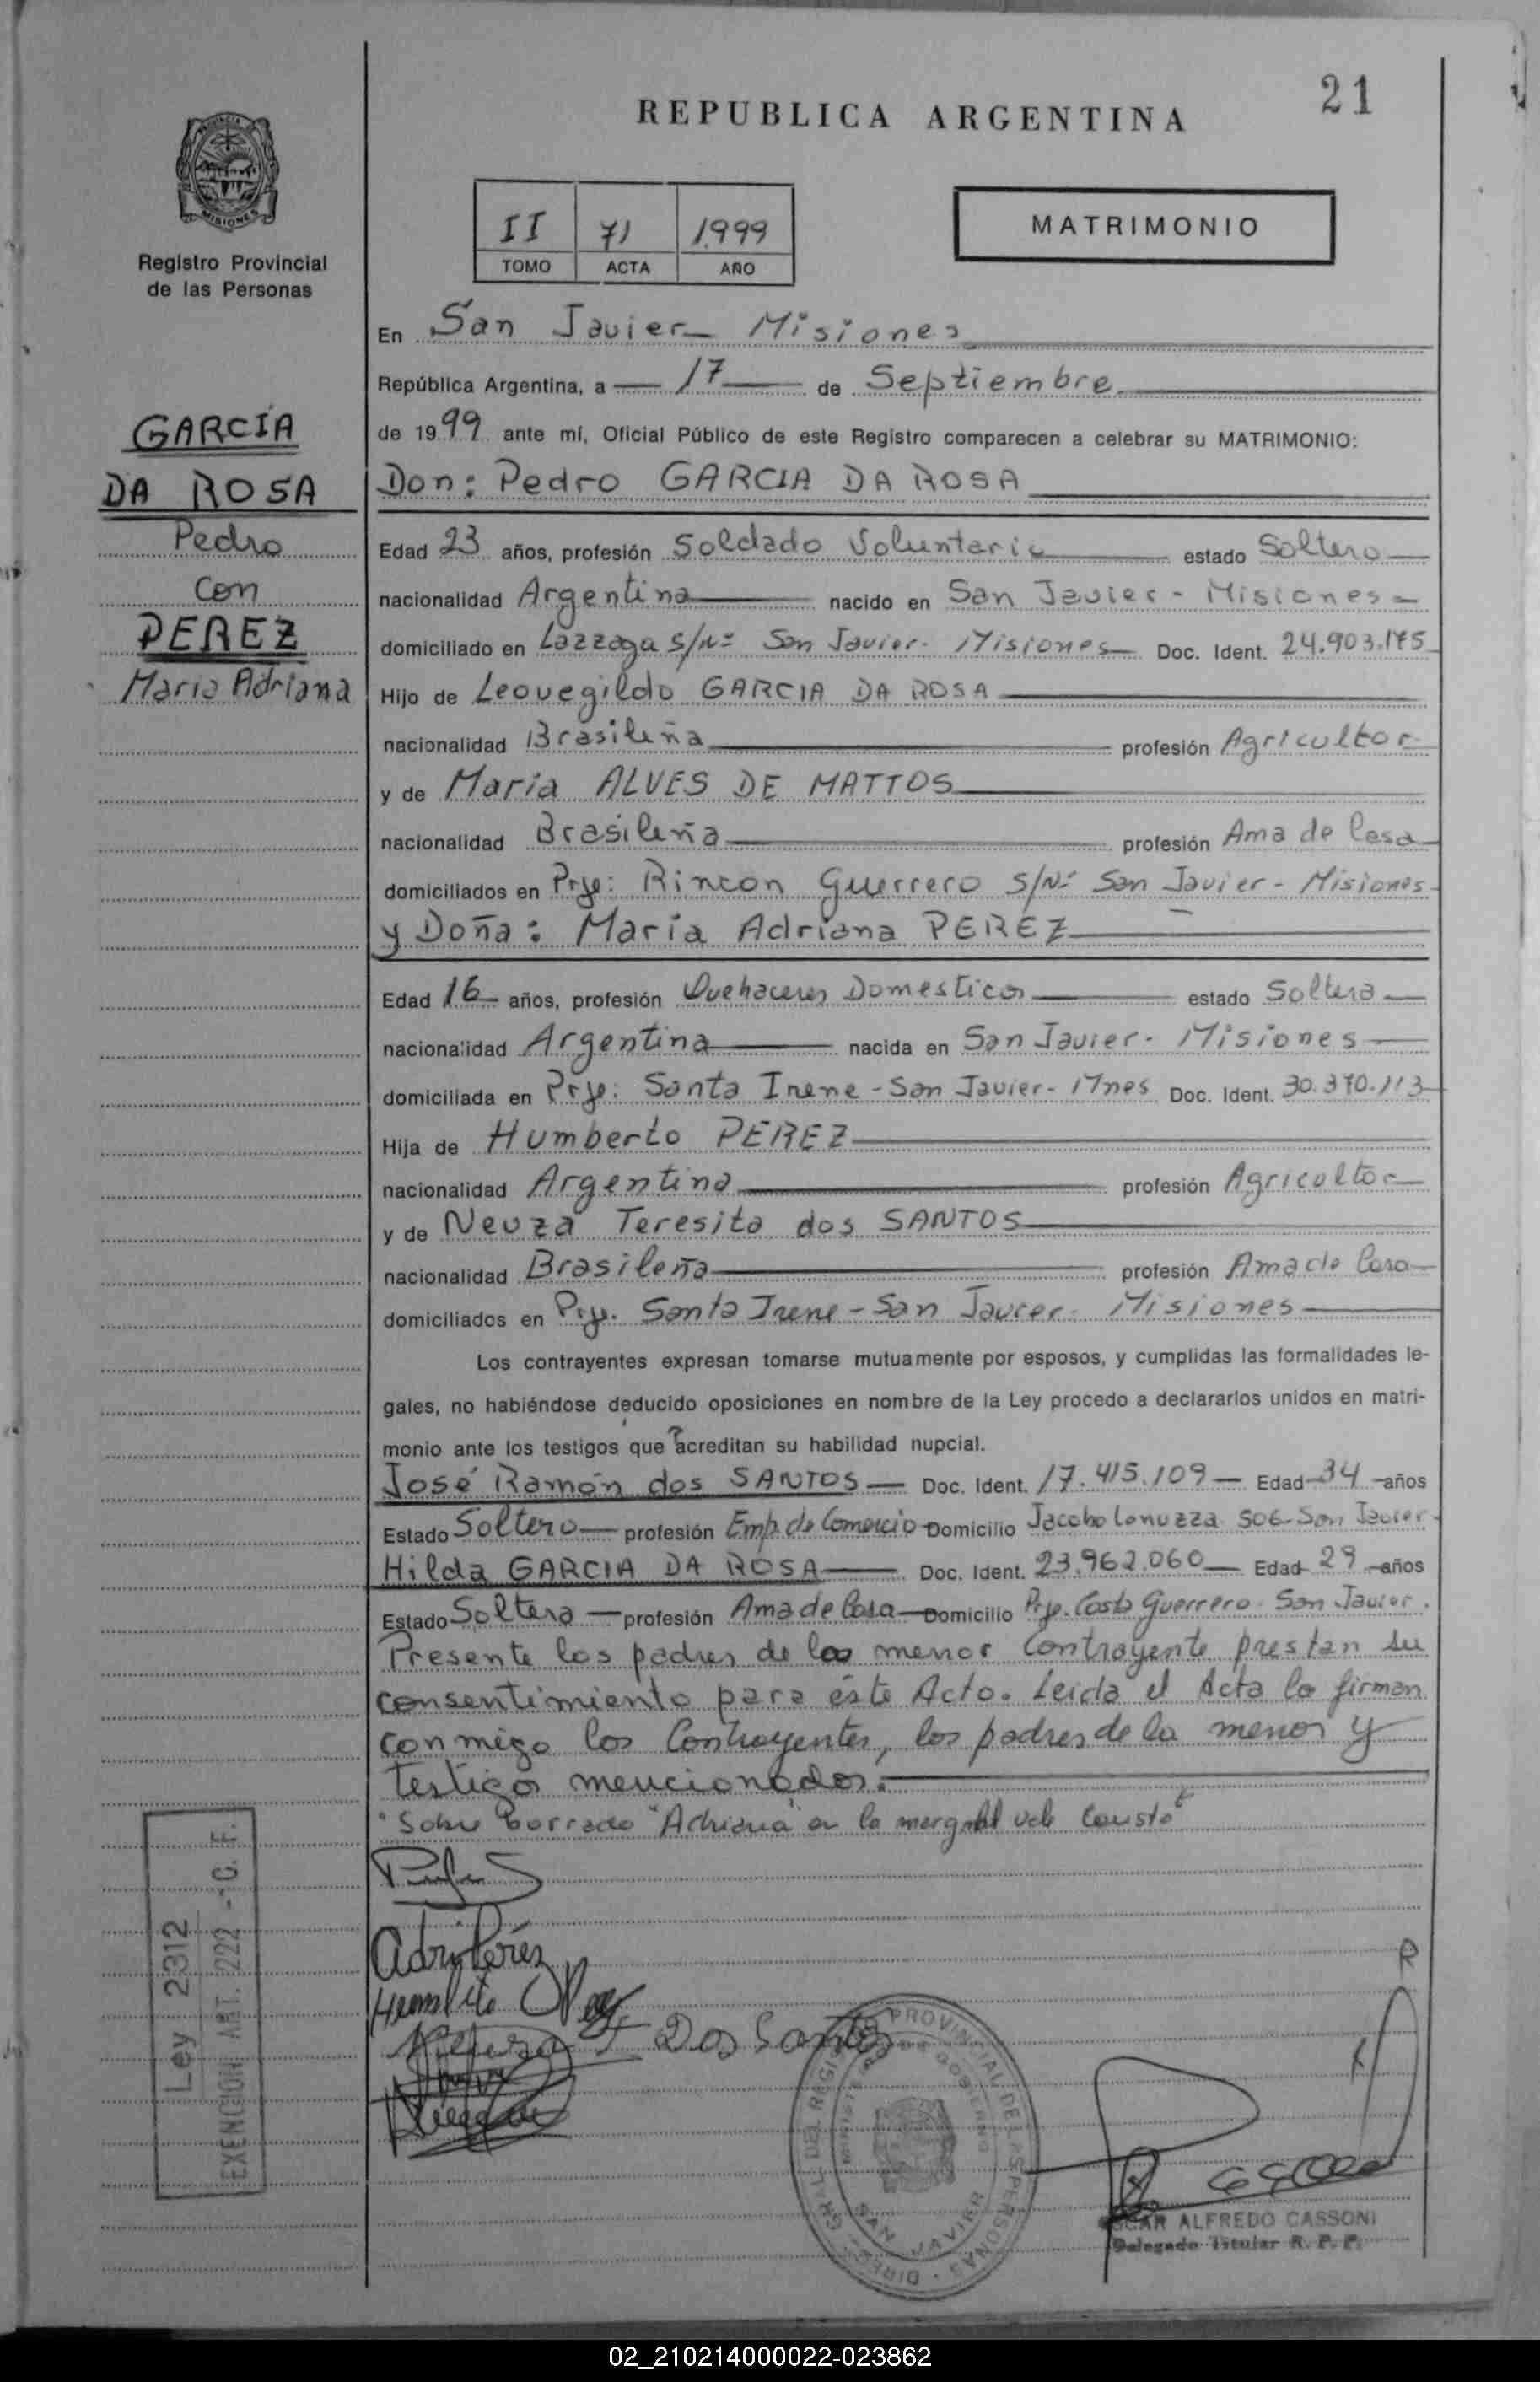 21
REPUBLICA ARGENTINA
MISIONES
Registro Provincial
de las Personas
II 71 1999
TOMO ACTA AÑO
MATRIMONIO
En San Javier Misiones
República Argentina, a 17 de Septiembre
de 1999 ante mí, Oficial Público de este Registro comparecen a celebrar su MATRIMONIO:
GARCÍA
DA ROSA
Pedro
con
PEREZ
María Adriana
Don: Pedro GARCIA DA ROSA
Edad 23 años, profesión Soldado Voluntario estado Soltero
nacionalidad Argentina nacido en San Javier - Misiones
domiciliado en Lazzaga s/Nº San Javier - Misiones Doc. Ident. 24.903.175
Hijo de Leovegildo GARCIA DA ROSA
nacionalidad Brasileña profesión Agricultor
y de María ALVES DE MATTOS
nacionalidad Brasileña profesión Ama de Casa
domiciliados en Prje: Rincon Guerrero s/Nº San Javier - Misiones
y Doña: María Adriana PEREZ
Edad 16 años, profesión Quehaceres Domesticos estado Soltera
nacionalidad Argentina nacida en San Javier - Misiones
domiciliada en Prje: Santa Irene - San Javier - Mnes Doc. Ident. 30.370.113
Hija de Humberto PEREZ
nacionalidad Argentina profesión Agricultor
y de Neuza Teresita dos SANTOS
nacionalidad Brasileña profesión Ama de Casa
domiciliados en Prje. Santa Irene - San Javier - Misiones
Los contrayentes expresan tomarse mutuamente por esposos, y cumplidas las formalidades le-
gales, no habiéndose deducido oposiciones en nombre de la Ley procedo a declararlos unidos en matri-
monio ante los testigos que acreditan su habilidad nupcial.
José Ramón dos SANTOS Doc. Ident. 17.415.109 Edad 34 años
Estado Soltero profesión Emp. de Comercio Domicilio Jacobo Lanuzza 506 - San Javier
Hilda GARCIA DA ROSA Doc. Ident. 23.962.060 Edad 29 años
Estado Soltera profesión Ama de Casa Domicilio Prje. Costa Guerrero - San Javier.
Presente los padres de la menor Contrayente prestan su
consentimiento para éste Acto. Leida el Acta la firman
conmigo los Contrayentes, los padres de la menor y
testigos mencionados.
Sobre borrado "Adriana" en la marginal vale Conste
Adri Pérez
Dos Santos
Ley 2312
EXENCION ART. 222 - C. F.
DIREC. GRAL. DEL REGISTRO PROVINCIAL DE LAS PERSONAS
MINISTERIO DE GOBIERNO
SAN JAVIER
OSCAR ALFREDO CASSONI
Delegado Titular R. P. P.
02_210214000022-023862